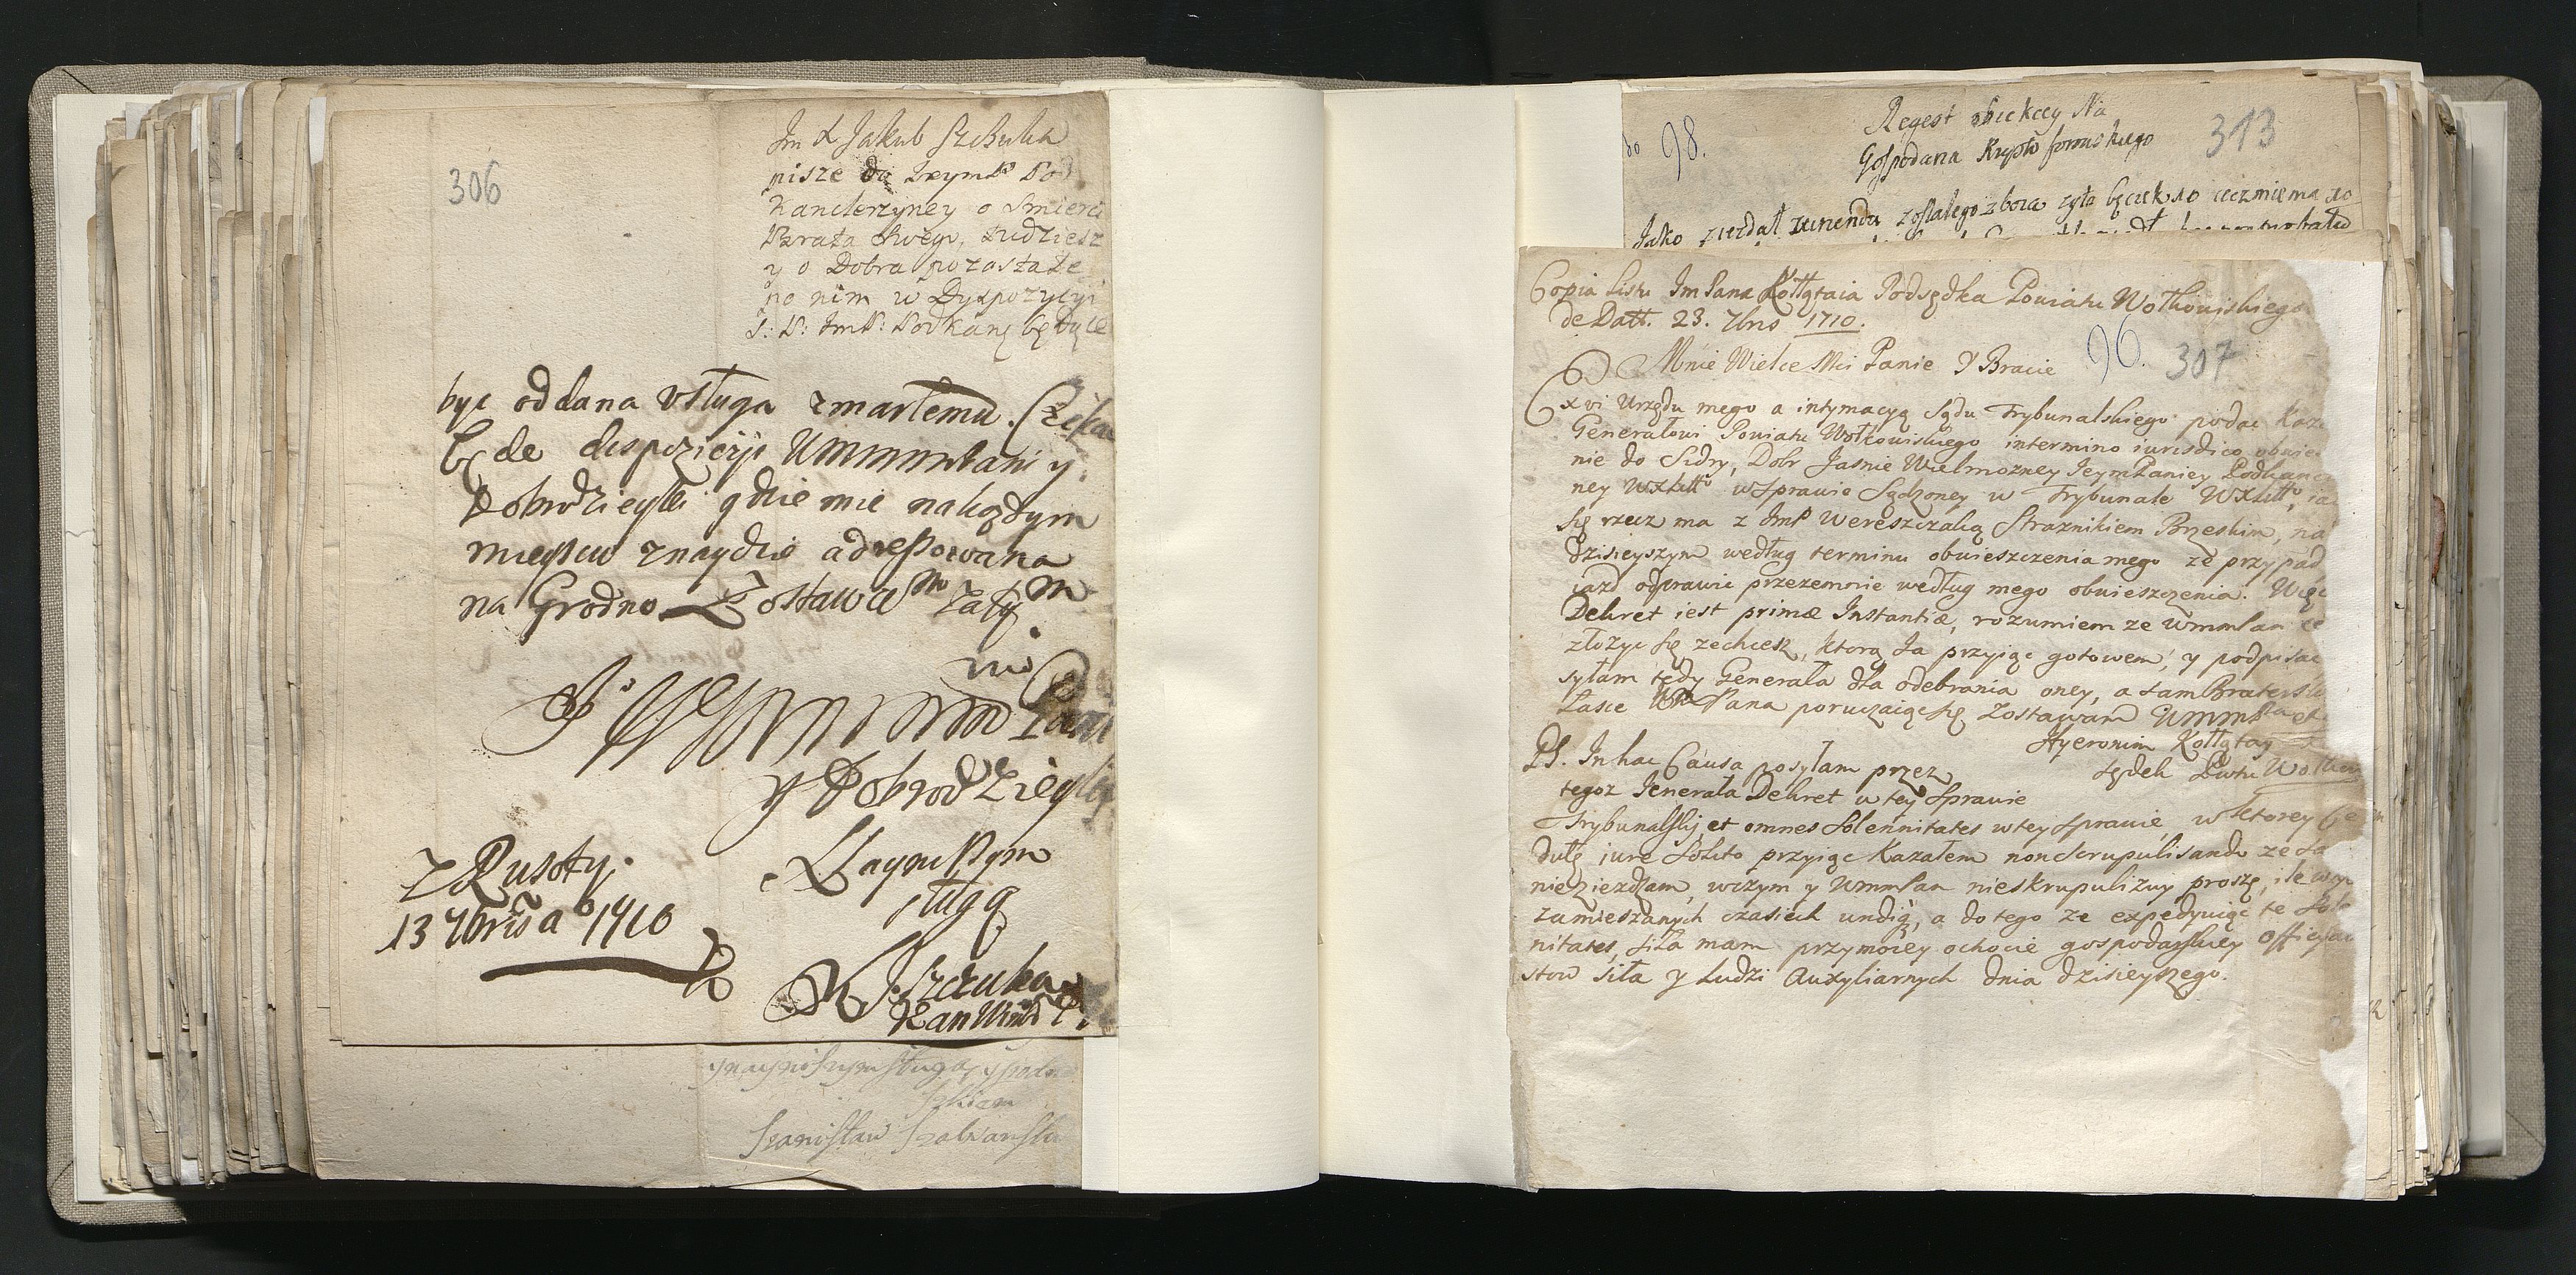 306
Jm X Jakub
pisze do Jeym P Pod
Kanclerzyney o Smierci
Brata swego, tudziesz
y o Dobra pozostałe
po nim w Dyspozycyi
być oddana usługa zmarłemu.
będe dispozicyji Ummmpani y
Dobrodzieyki gdzie mie na kożdym
mieyscu znaydzie adressowana
na Grodno Zostawam Zatym
Pani
y Dobrodzieyki
Z Rusoty.
13 7bris ao 1710
Naynisszym
sługą
Szczuka
naynisszym sługą y podno
szkiem
Stanisław
98.
Regest
Gospodarza
313
Jako zostałego zboza zyta beczek 10 ięczmienia 10
Copia Listu Jm Pana Kołłątaia Podsędka Powiatu Wołkowiskiego
de Datt. 23. 7bris 1710.
Mnie Wielce Mci Panie Y Bracie
96. 307
Ex vi Urzędu mego a intymacyą Sądu Trybunalskiego podać Kaza
Generałowi Powiatu Wołkowiskiego in termino iurisdico obwiesz
nie do Sidry, Dobr Jasnie Wielmozney Jeym Paniey Podkanc
ney WXLitto w Sprawie Sądzoney w Trybunale WXLitto, ia
się rzecz ma z JmP Wereszczaką Straznikiem Brzeskim, na
dzisieyszym według terminu obwieszczenia mego ze przypad
iazd odprawić przezemnie według mego obwieszczenia. Więc
Dekret iest primæ Instantiæ, rozumiem ze Wmmpan
złożyć się zechcesz, ktorą Ja przyiąć gotowem, y podpisać
syłam tedy Generała dla odebrania oney, a sam Braterski
Łasce Wm Pana poruczaiąc się zostawam Ummm
Hyeronim Kołłątay
Sędek Pwtu Wołkow
PS. In hac Causa posyłam przez
tegoz Jenerała Dekret w tey Sprawie
Trybunalskij, et omnes Solennitates w tey sprawie, w ktorey Ce
dułę iure solito przyiąć Kazałem non scrupulisando ze Ja
nie ziezdzam, w czym y Ummpan nieskrupulizuy proszę, ile w
zamieszanych czasiech undiq, a do tego ze expedyuiąc te Sole
nitates, siła mam przy moiey ochocie gospodarskiey Officyali
stow siła y ludzi Auxyliarnych dnia dzisieyszego.